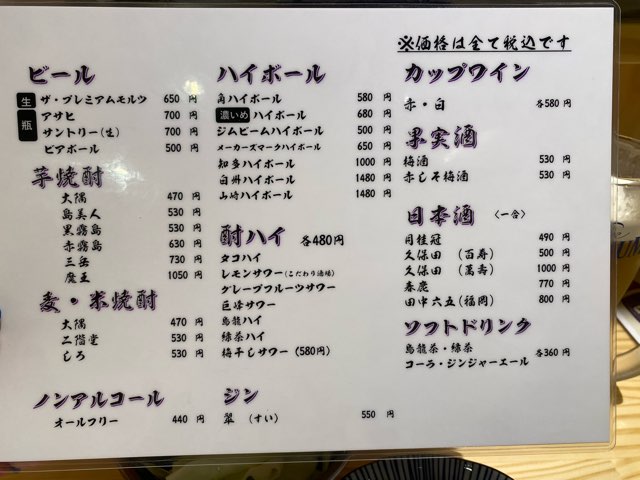 ※価格は全て税込です
ビール
生 ザ・プレミアムモルツ 650 円
瓶 アサヒ 700 円
サントリー(生) 700 円
ビアボール 500 円
芋焼酎
大隅 470 円
島美人 530 円
黒霧島 530 円
赤霧島 630 円
三岳 730 円
魔王 1050 円
麦・米焼酎
大隅 470 円
二階堂 530 円
しろ 530 円
ノンアルコール
オールフリー 440 円
ハイボール
角ハイボール 580 円
濃いめ ハイボール 680 円
ジムビームハイボール 500 円
メーカーズマークハイボール 650 円
知多ハイボール 1000 円
白州ハイボール 1480 円
山崎ハイボール 1480 円
酎ハイ 各480円
タコハイ
レモンサワー(こだわり酒場)
グレープフルーツサワー
巨峰サワー
烏龍ハイ
緑茶ハイ
梅干しサワー (580円)
ジン
翠 (すい) 550 円
カップワイン
赤・白 各580 円
果実酒
梅酒 530 円
赤しそ梅酒 530 円
日本酒 〈一合〉
月桂冠 490 円
久保田 (百寿) 500 円
久保田 (萬寿) 1000 円
春鹿 770 円
田中六五(福岡) 800 円
ソフトドリンク
烏龍茶・緑茶
コーラ・ジンジャーエール 各360 円